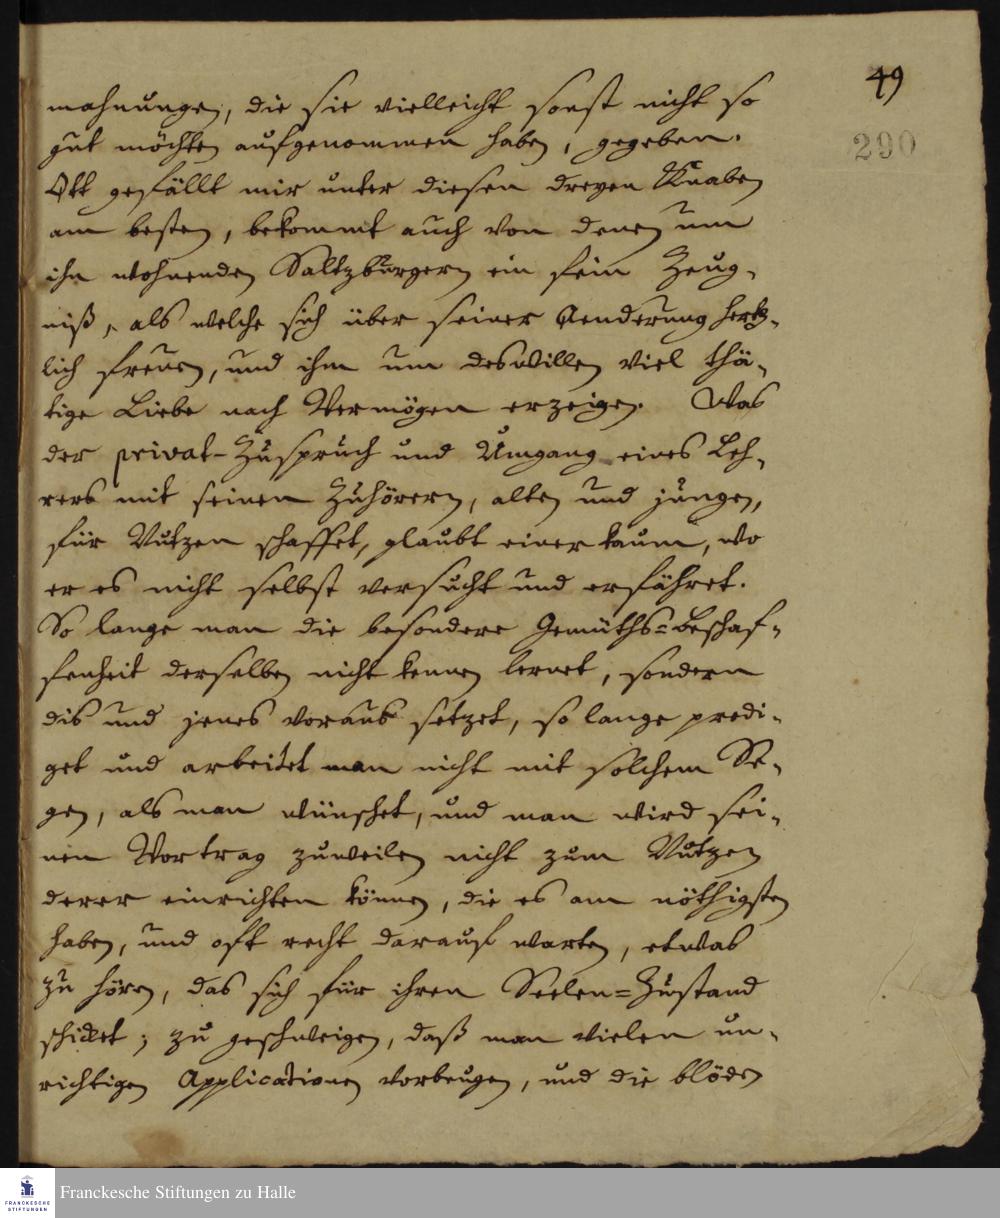 49
290
mahnungen, die sie vielleicht sonst nicht so
gut möchten aufgenommen haben, gegeben.
Ott gefällt mir unter diesen dreyen Knaben
am besten, bekommt auch von denen um
ihn wohnenden Saltzburgern ein fein Zeug-
niß, als welche sich über seiner Aenderung hertz-
lich freuen, und ihm um deswillen viel thä-
tige Liebe nach Vermögen erzeigen. Was
der privat-Zuspruch und Umgang eines Leh-
rers mit seinen Zuhörern, alten und jungen,
für Nutzen schaffet, glaubt einer kaum, wo
er es nicht selbst versucht und erfähret.
So lange man die besondere Gemüths-Beschaf-
fenheit derselben nicht kennen lernet, sondern
dis und jenes voraus setzet, so lange predi-
get und arbeitet man nicht mit solchem Se-
gen, als man wünschet, und man wird sei-
nen Vortrag zuweilen nicht zum Nutzen
derer einrichten können, die es am nöthigsten
haben, und oft recht darauf warten, etwas
zu hören, das sich für ihren Seelen-Zustand
schicket; zu geschweigen, daß man vielen un-
richtigen Applicationen vorbeugen, und die blöden
FRANCKESCHE
STIFTUNGEN
Franckesche Stiftungen zu Halle